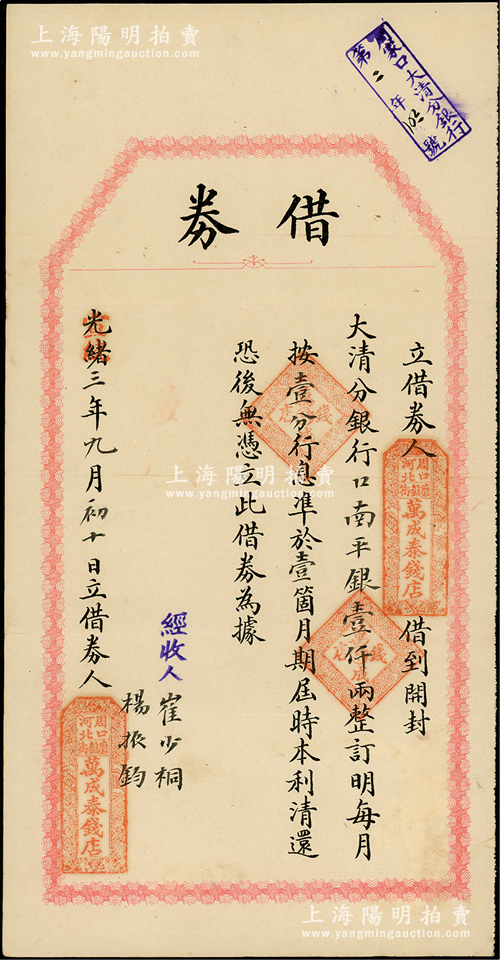 上海陽明拍賣
www.yangmingauction.com
周家口大清分銀行
第二年102號
借券
立借券人
萬成泰錢店
借到開封
大清分銀行口南平銀壹仟兩整訂明每月
按壹分行息準於壹箇月期屆時本利清還
恐後無憑立此借券為據
經收人
崔少桐
楊振鈞
光緒三年九月初十日立借券人
周口
河北
萬成泰錢店
上海陽明拍賣
www.yangmingauction.com
上海陽明拍賣
www.yangmingauction.com